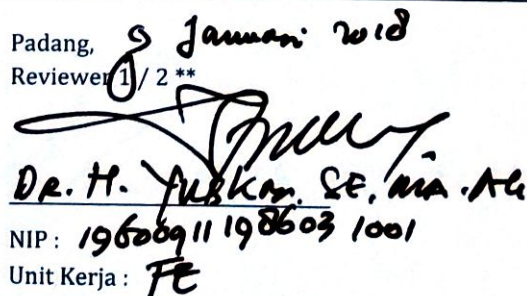 Padang, 9 Januari 2018
Reviewer 1 / 2 **
DR. H. Yuskar, SE, MA. Ak
NIP : 19600911 198603 1001
Unit Kerja : FE